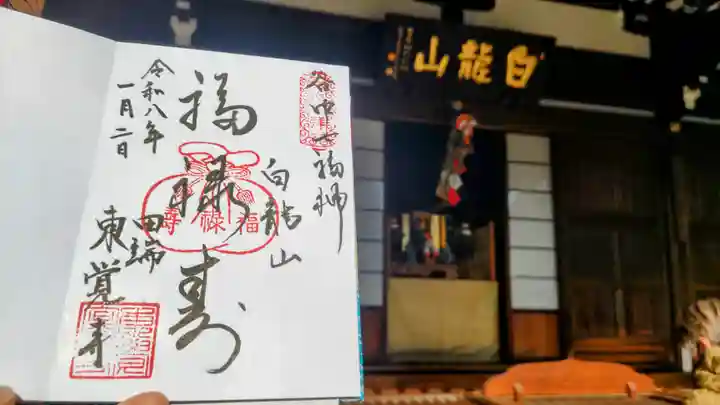 白龍山
谷中七福神
白龍山
福禄寿
福禄壽
田端
東覚寺
令和八年
一月二日